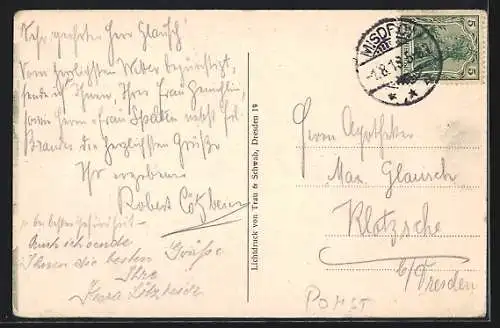 Sehr geehrter Herr Glausch!
Vom herrlichsten Wetter begünstigt,
sende ich Ihnen, Ihrer Frau Gemahlin,
sowie Herrn u. Frau Spalke nebst
die herzlichsten Grüße
Ihr ergebener
Robert Lötzbeier
Auch ich sende
Ihnen die besten Grüße
Ihre
Klara Lötzbeier
Lichtdruck von Trau & Schwab, Dresden 19
MISDROY
5
5
Herrn Apotheker
Max Glausch
Klotzsche
b/Dresden